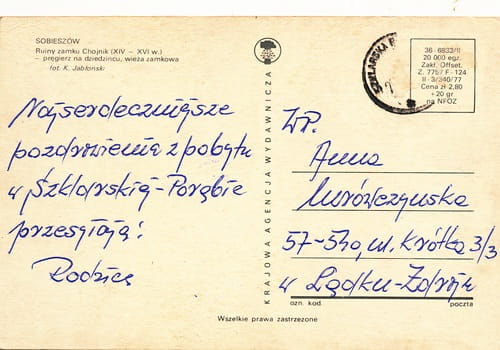 SOBIESZÓW
Ruiny zamku Chojnik (XIV – XVI w.)
– pręgierz na dziedzińcu, wieża zamkowa
fot. K. Jabłoński
Najserdeczniejsze
pozdrowienia z pobytu
w Szklarskiej-Porębie
przesyłają:
Rodzice
KRAJOWA AGENCJA WYDAWNICZA
SZKLARSKA
36-6833/II
20 000 egz.
Zakł. Offset.
Z. 7757 F-124
II-3/340/77
Cena zł 2,80
+ 20 gr
na NFOZ
WP.
Anna
Murówczyńska
57-540, ul. Krótka 3/3
w Lądku-Zdroju
ozn. kod
poczta
Wszelkie prawa zastrzeżone